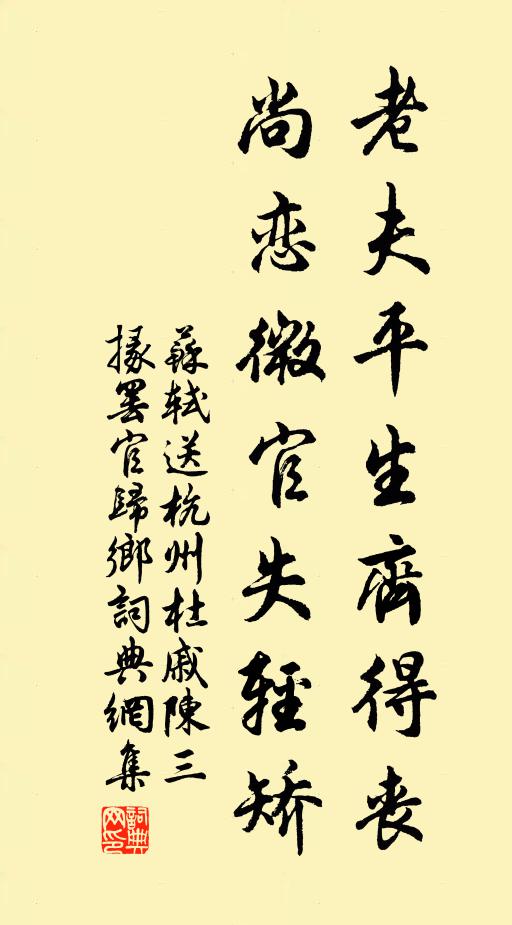 老夫平生齊得丧
尚恋微官失輕矫
蘇軾送杭州杜戚陳三
掾罢官歸鄉詞典網集
詞典网印